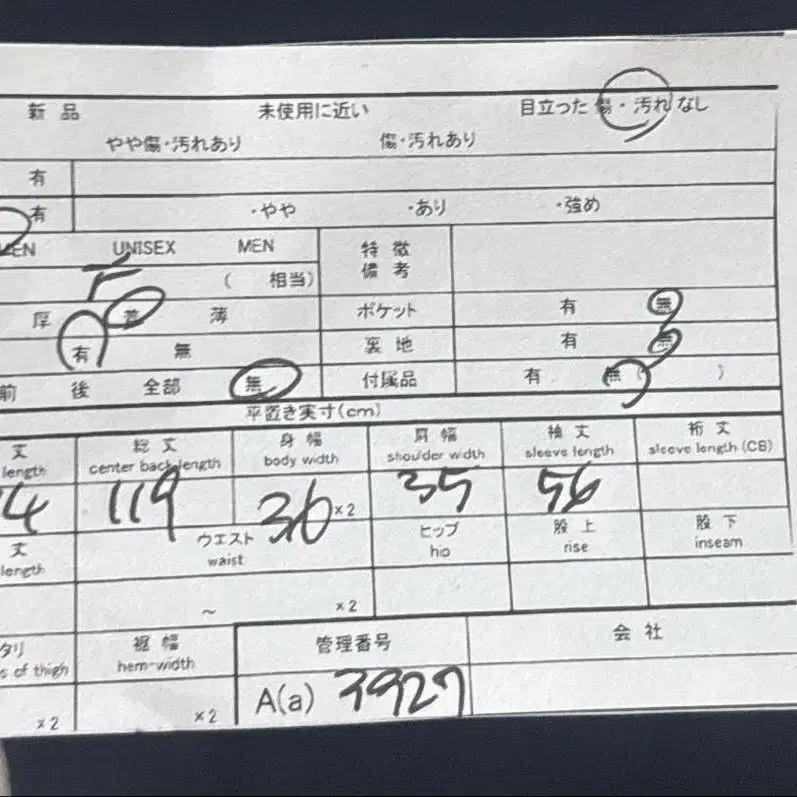 新品 未使用に近い 目立った傷・汚れなし
やや傷・汚れあり 傷・汚れあり
有
有 ・やや ・あり ・強め
UNISEX MEN 特徴
備考
F ( 相当)
厚 普 薄 ポケット 有 無
有 無 裏地 有 無
前 後 全部 無 付属品 有 無( )
平置き実寸(cm)
丈 総丈 身幅 肩幅 袖丈 裄丈
length center back length body width shoulder width sleeve length sleeve length (CB)
4 119 36 ×2 35 56
丈 ウエスト ヒップ 股上 股下
length waist hip rise inseam
~ ×2
タリ 裾幅 管理番号 会社
s of thigh hem-width
×2 ×2 A(a) 3927